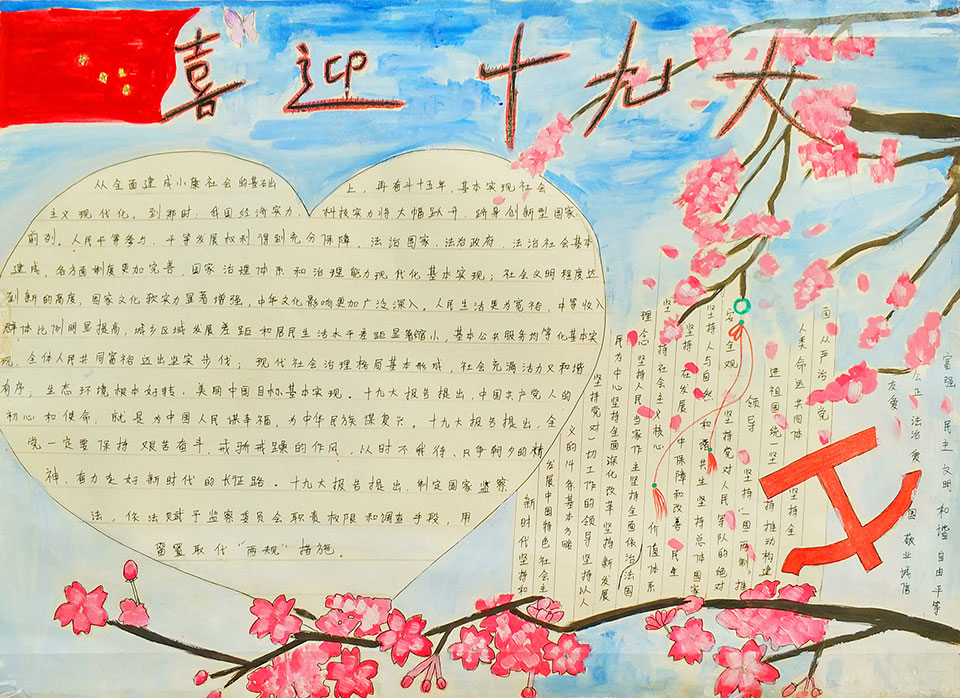 喜迎十九大
从全面建成小康社会的基础上,再奋斗十五年,基本实现社会
主义现代化。到那时,我国经济实力、科技实力将大幅跃升,跻身创新型国家
前列。人民平等参与、平等发展权利得到充分保障,法治国家、法治政府、法治社会基本
建成,各方面制度更加完善,国家治理体系和治理能力现代化基本实现;社会文明程度达
到新的高度,国家文化软实力显著增强,中华文化影响更加广泛深入。人民生活更为宽裕,中等收入
群体比例明显提高,城乡区域发展差距和居民生活水平差距显著缩小,基本公共服务均等化基本实
现,全体人民共同富裕迈出坚实步伐;现代社会治理格局基本形成,社会充满活力又和谐
有序;生态环境根本好转,美丽中国目标基本实现。十九大报告提出,中国共产党人的
初心和使命,就是为中国人民谋幸福,为中华民族谋复兴。十九大报告提出,全
党一定要保持艰苦奋斗、戒骄戒躁的作风,以时不我待、只争朝夕的精
神,奋力走好新时代的长征路。十九大报告提出,制定国家监察
法,依法赋予监察委员会职责权限和调查手段,用
留置取代“两规”措施。
富强 民主 文明 和谐 自由 平等
公正 法治 爱国 敬业 诚信
友爱
新时代坚持和
发展中国特色社会主
义的14条基本方略
坚持党对一切工作的领导坚持以人
民为中心坚持全面深化改革坚持新发展
理念坚持人民当家作主坚持全面依法治国
坚持社会主义核心价值体系
坚持在发展中保障和改善民生
坚持人与自然和谐共生坚持总体国家
安全观 坚持党对人民军队的绝对
领导 坚持“一国两制”推
进祖国统一坚持推动构建
人类命运共同体 坚持全
面从严治党